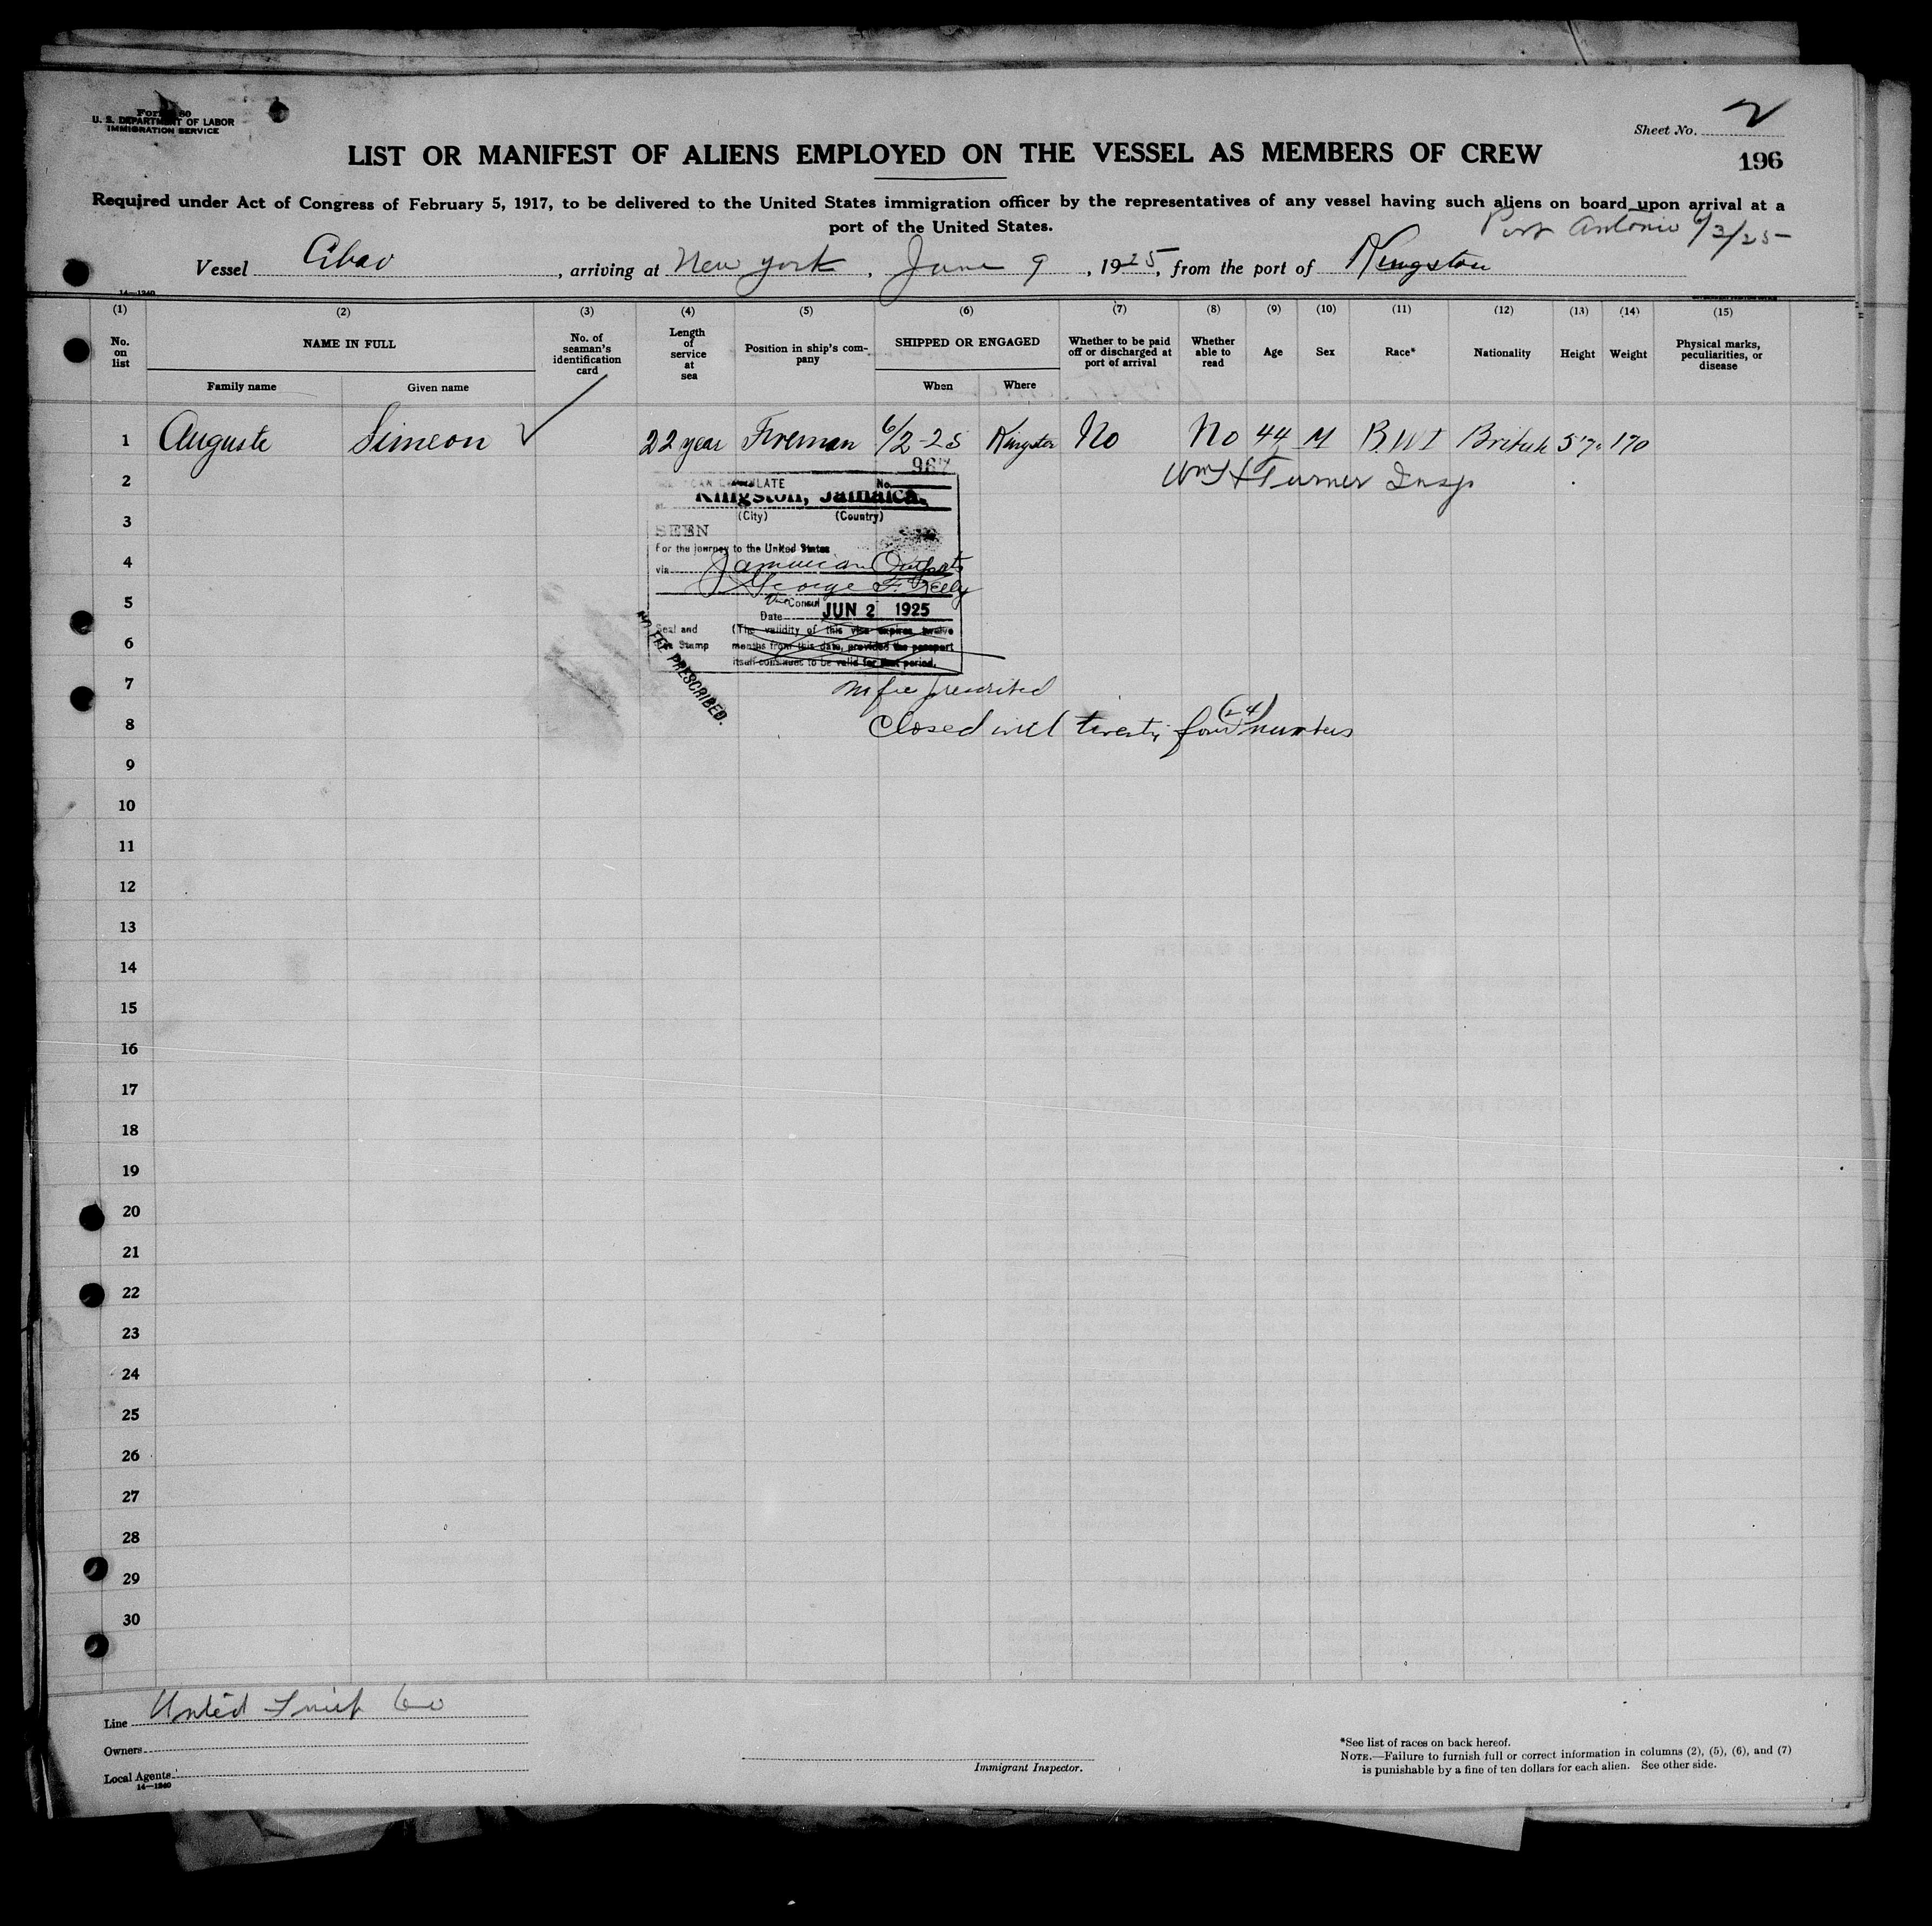 Form 680
U. S. DEPARTMENT OF LABOR
IMMIGRATION SERVICE
Sheet No. 2
LIST OR MANIFEST OF ALIENS EMPLOYED ON THE VESSEL AS MEMBERS OF CREW
196
Required under Act of Congress of February 5, 1917, to be delivered to the United States immigration officer by the representatives of any vessel having such aliens on board upon arrival at a
port of the United States.
Port Antonio 6/3/25
Vessel Cibao, arriving at New York, June 9, 1925, from the port of Kingston
14—1240
(1) (2) (3) (4) (5) (6) (7) (8) (9) (10) (11) (12) (13) (14) (15)
No. on list
NAME IN FULL
Family name Given name
No. of seaman's identification card
Length of service at sea
Position in ship's company
SHIPPED OR ENGAGED
When Where
Whether to be paid off or discharged at port of arrival
Whether able to read
Age
Sex
Race*
Nationality
Height
Weight
Physical marks, peculiarities, or disease
1 Auguste Simeon ✓ 22 year Fireman 6/2-25 Kingston No No 44 M B.W.I British 5'7" 170
2 Wm H Turner Insp
3
4
5
6
7
8
9
10
11
12
13
14
15
16
17
18
19
20
21
22
23
24
25
26
27
28
29
30
967
CONSULATE No.
Kingston, Jamaica.
(City) (Country)
SEEN
For the journey to the United States
via Jamaican Outports
George F. Kelly
Vice Consul
Date JUN 2 1925
Seal and Fee Stamp
(The validity of this visa expires twelve
months from this date, provided the passport
itself continues to be valid for that period.
NO FEE PRESCRIBED.
No fee prescribed
Closed with twenty four (24) members
Line United Fruit Co
Owners
Local Agents
14—1240
Immigrant Inspector.
*See list of races on back hereof.
NOTE.—Failure to furnish full or correct information in columns (2), (5), (6), and (7)
is punishable by a fine of ten dollars for each alien. See other side.